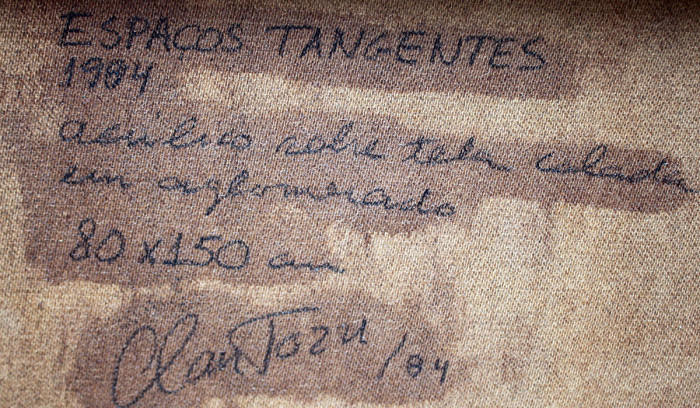 ESPAÇOS TANGENTES
1984
acrílico sobre tela colada
em aglomerado
80 x 150 cm
/84